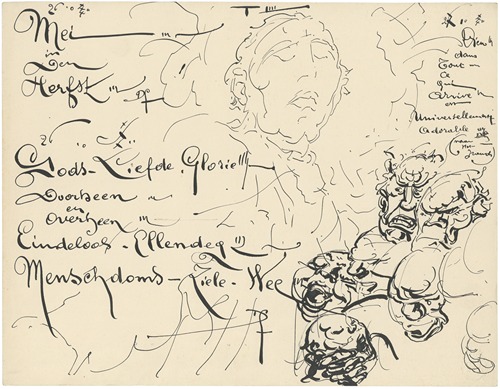 Mei
in
Den
Herfst
Gods-Liefde Glorie
Doorheen
en
Overheen
Eindeloos-Ellendeg
Menschdoms-Ziele-Wee
Dieu
dans
Tout
Ce
qui
Arrive
en
Universellement
Adorable